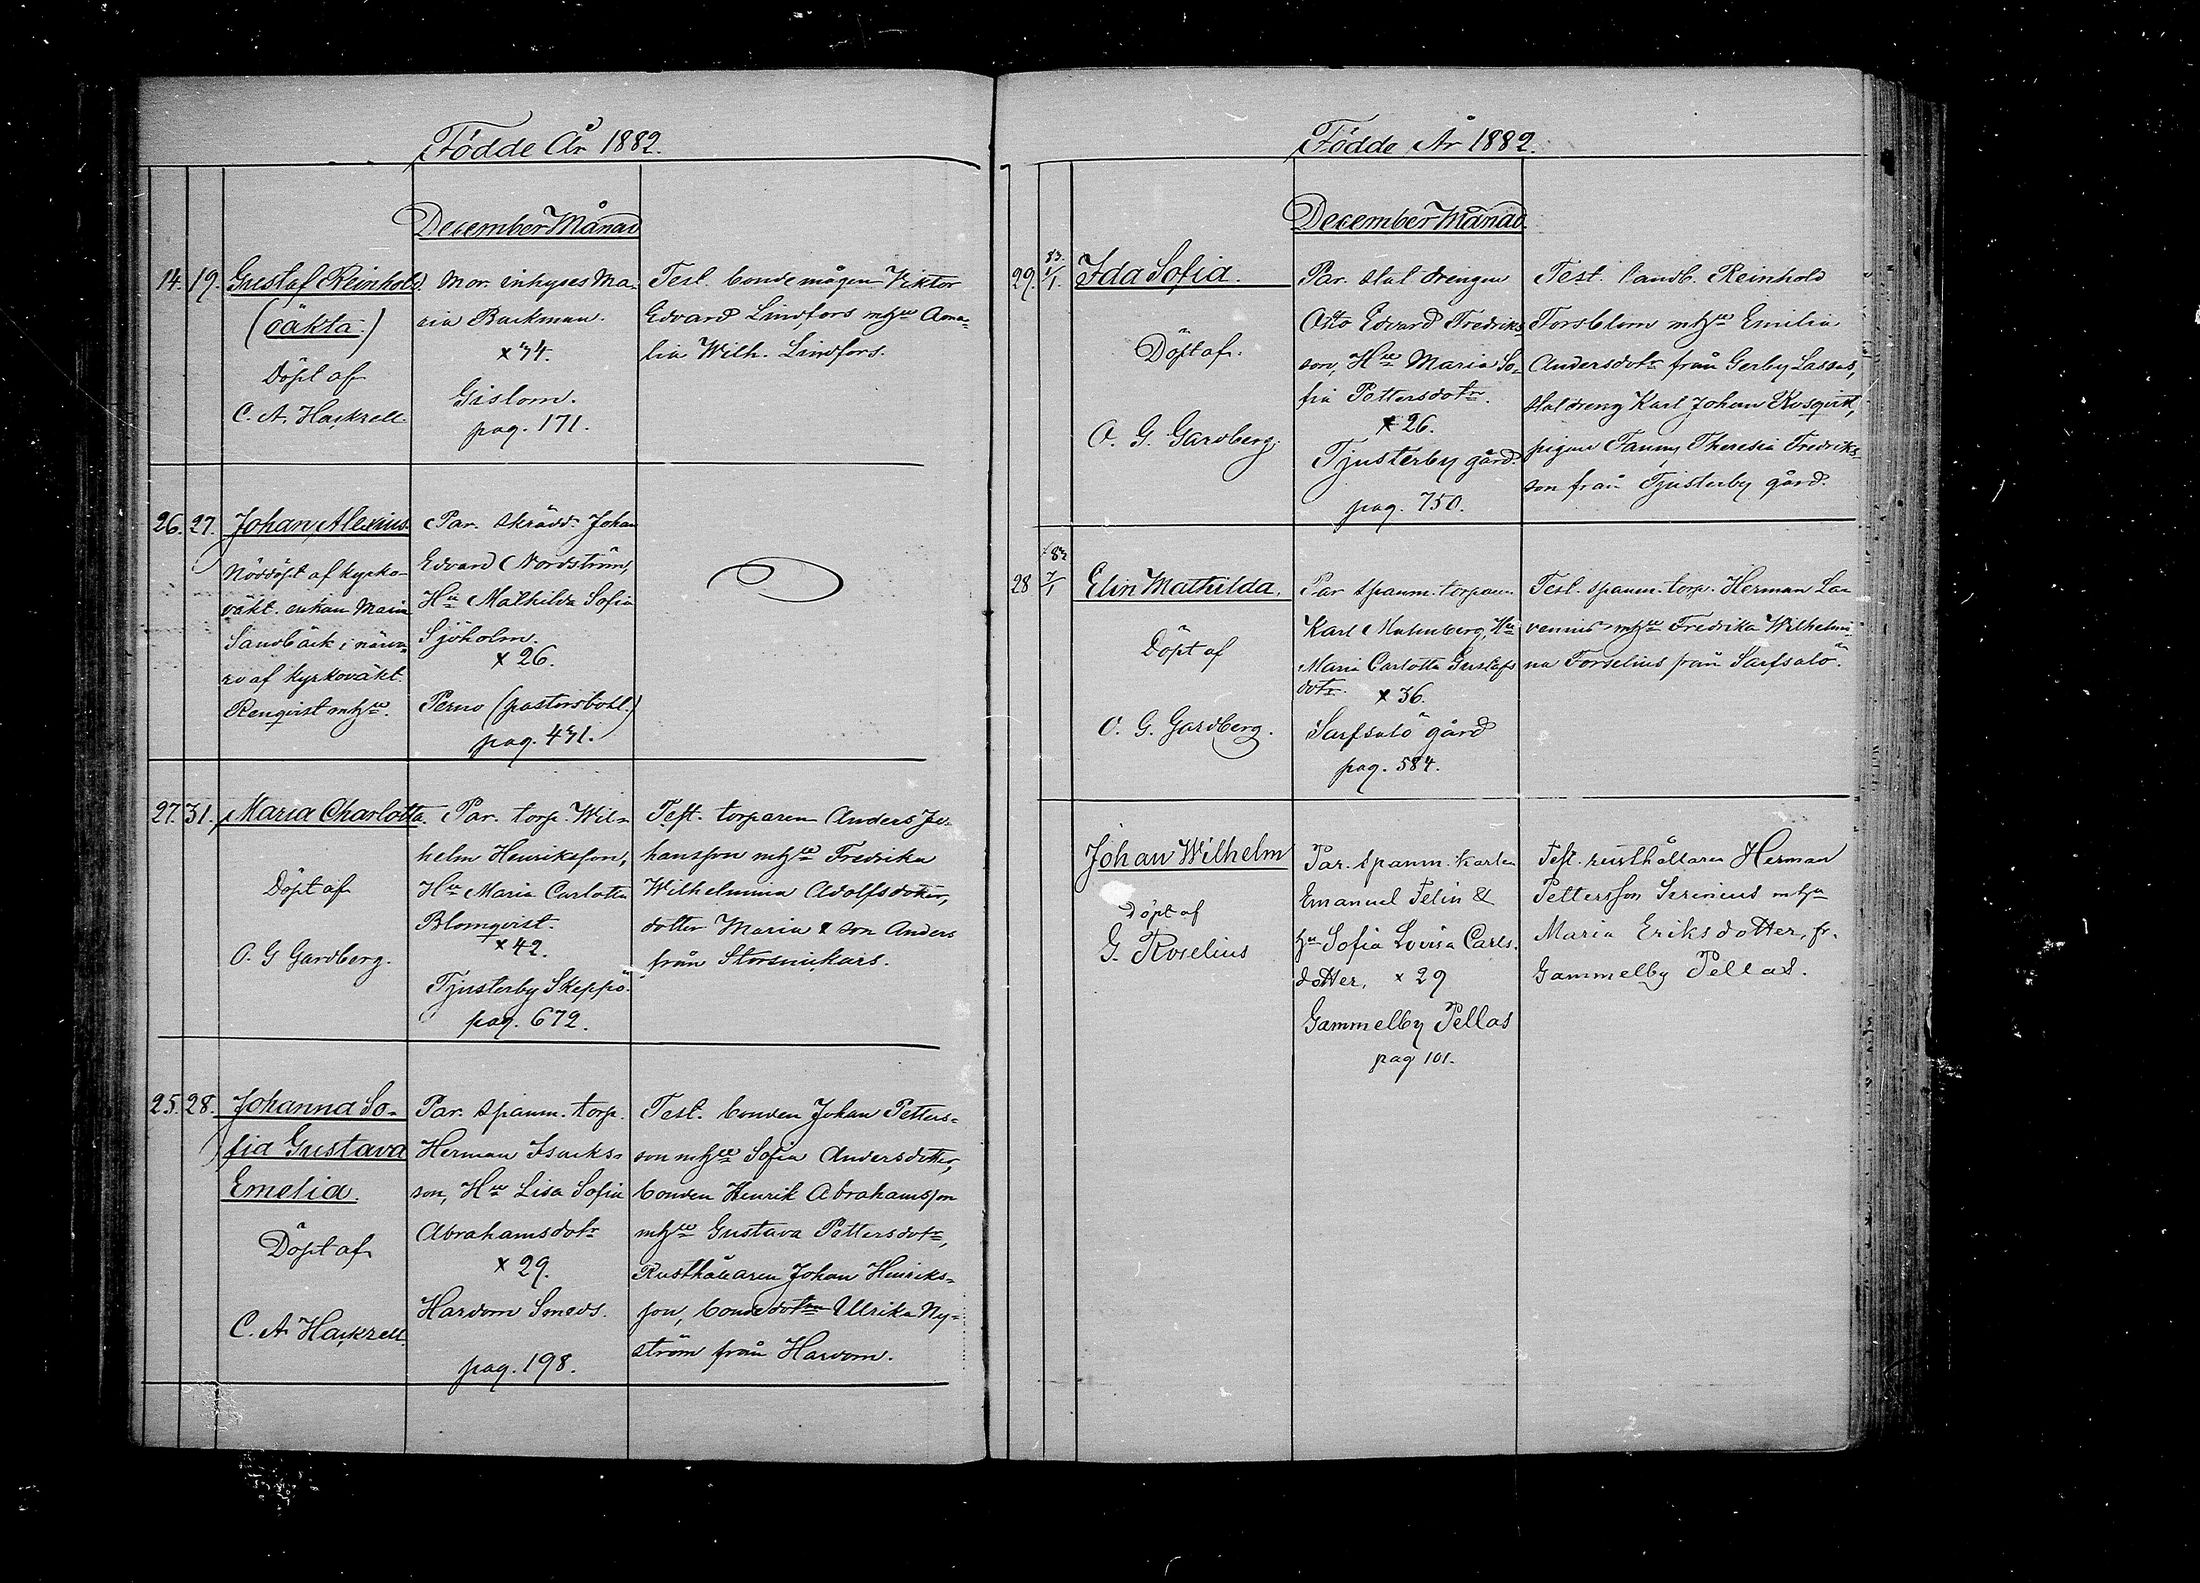 Födde År 1882.
December Månad
14. 19. Gustaf Reinhold.
(oäkta.)
Döpt af
C. A. Hackzell.
Mor. inhyses Ma-
ria Backman.
x 34.
Gislom.
pag. 171.
Test. bondemågen Viktor
Edvard Lindfors mhu Ama-
lia Wilh. Lindfors.
26. 27. Johan Alexius.
Nöddöpt af kyrko-
väkt. enkan Maria
Sandbäck i närva-
ro af kyrkoväkt.
Renqvist mhu.
Par. skrädd. Johan
Edvard Nordström,
Hu Mathilda Sofia
Sjöholm.
x 26.
Perno (pastorsbohl.)
pag. 431.
27. 31. Maria Charlotta.
Döpt af
O. G Gardberg.
Par. torp. Wil-
helm Henriksson,
Hu Maria Carlotta
Blomqvist.
x 42.
Tjusterby Skeppö.
pag. 672.
Test. torparen Anders Jo-
hansson mhu Fredrika
Wilhelmina Adolfsdotter,
dotter Maria & son Anders
från Storsnickars.
25. 28. Johanna So-
fia Gustava
Emelia.
Döpt af
C. A. Hackzell.
Par. spanm. torp.
Herman Isaks-
son, Hu Lisa Sofia
Abrahamsdotr
x 29.
Hardom Smeds.
pag. 198.
Test. bonden Johan Petters-
son mhu Sofia Andersdotter,
bonden Henrik Abrahamsson
mhu Gustava Pettersdotr,
Rusthållaren Johan Henriks-
son, bondedotren Ulrika Ny-
ström från Hardom.
Födde År 1882.
December Månad.
29. 83. 1/1. Ida Sofia.
Döpt af.
O. G. Gardberg.
Par. staldrengen
Otto Edvard Fredriks-
son, Hu Maria So-
fia Pettersdotr.
x 26.
Tjusterby gård.
pag. 750.
Test. landb. Reinhold
Forsblom mhu Emilia
Andersdotr från Gerby Lassas,
staldreng Karl Johan Rosqvist,
pigan Fanny Theresia Fredriks-
son från Tjusterby gård.
28 83 7/1 Elin Mathilda.
Döpt af
O. G. Gardberg.
Par spanm. torparen
Karl Malmberg, Hu
Maria Carlotta Gustafs
dotr. x 36.
Sarfsalö gård
pag. 584.
Test. spanm. torp. Herman La-
venius mhu Fredrika Wilhelmi-
na Forselius från Sarfsalö.
Johan Wilhelm
Döpt af
G. Roselius
Par. spanm. karlen
Emanuel Felin &
hu Sofia Lovisa Carls-
dotter, x 29
Gammelby Pellas
pag 101.
Test. rusthållaren Herman
Pettersson Serenius mhu
Maria Eriksdotter, fr.
Gammelby Pellas.